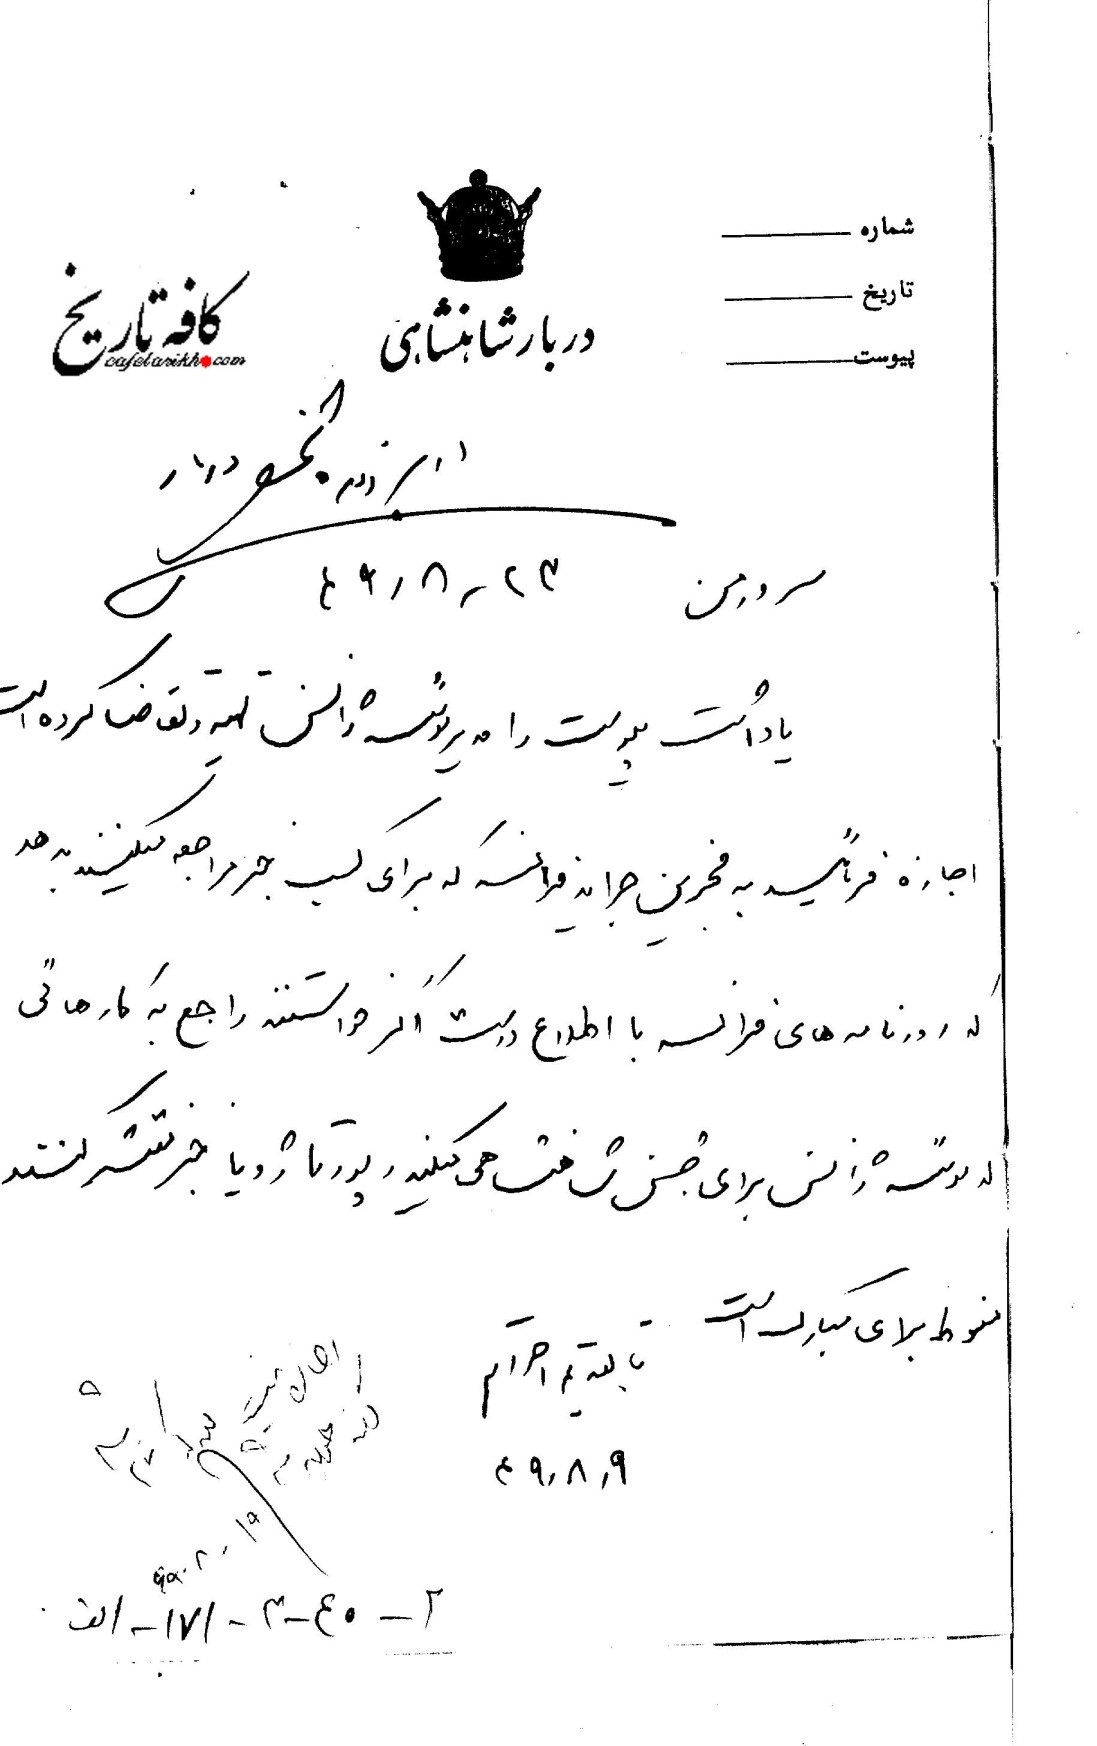 شماره
تاریخ
پیوست
دربار شاهنشاهی
کافه تاریخ
cafetarikh.com
دربار
سرور من
۴۹/۸/۲۳
یادداشت پیوست را مدیر موسسه ژرانس تهیه و تقاضا کرده است
اجازه فرمائید به مخبرین جراید فرانسه که برای کسب خبر مراجعه میکنند بدهد
که روزنامه های فرانسه با اطلاع درست اگر خواستند راجع به کارهائی
که موسسه ژرانس برای جشن شاهنشاهی میکنند رپورتاژ و یا خبر منتشر کنند
منوط برای مبارک است
با تقدیم احترام
۴۹/۸/۹
۲-۴۵-۳-۱۷۱-الف